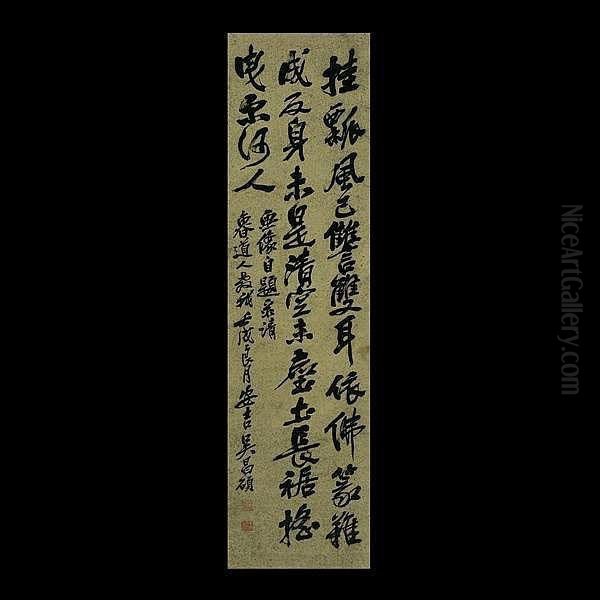 挂瓢風已雔雙耳依佛篆難
成反身未是清空未塵土長裾搖
曳果何人
畫像自題录請
春道人教我壬戌良月安吉吳昌碩
NiceArtGallery.com